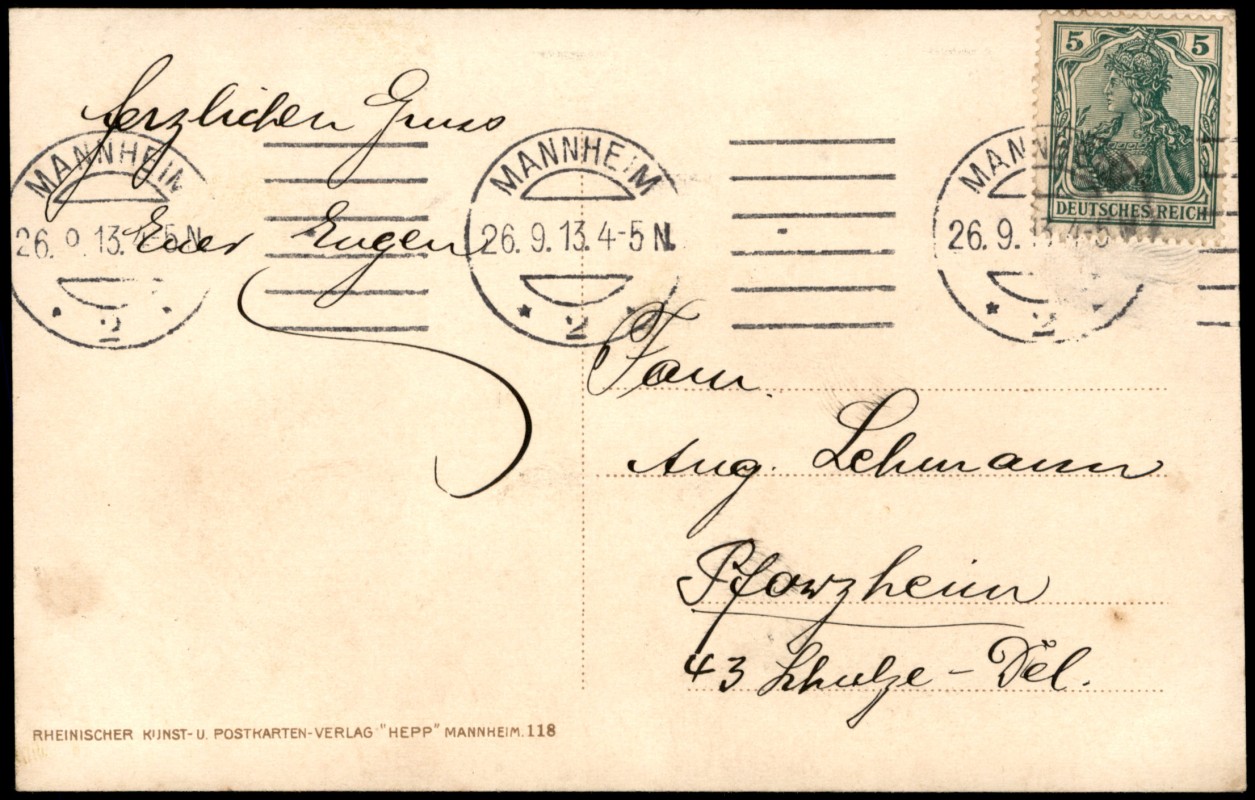 5 5
DEUTSCHES REICH
herzlichen Gruss
Euer Eugen
MANNHEIM
26. 9. 13. 4-5 N.
* 2 *
MANNHEIM
26. 9. 13. 4-5 N.
* 2 *
MANNHEIM
26. 9. 13. 4-5
* 2
Fam.
Aug. Lehmann
Pforzheim
43 Schulze - Del.
RHEINISCHER KUNST- U. POSTKARTEN-VERLAG "HEPP" MANNHEIM. 118